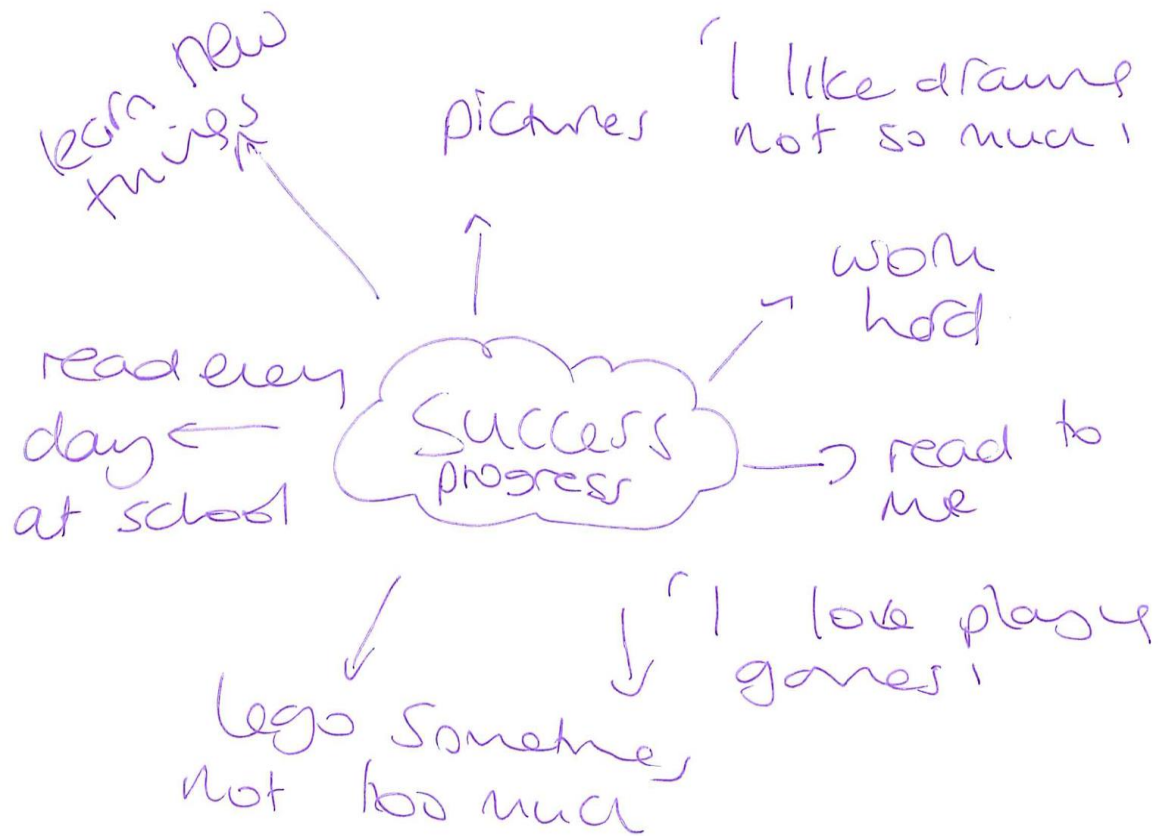 learn new
things
pictures
'I like drawing
not so much'
work
hard
read every
day
at school
Success
progress
read to
me
'I love playing
games'
Lego Sometimes
not too much